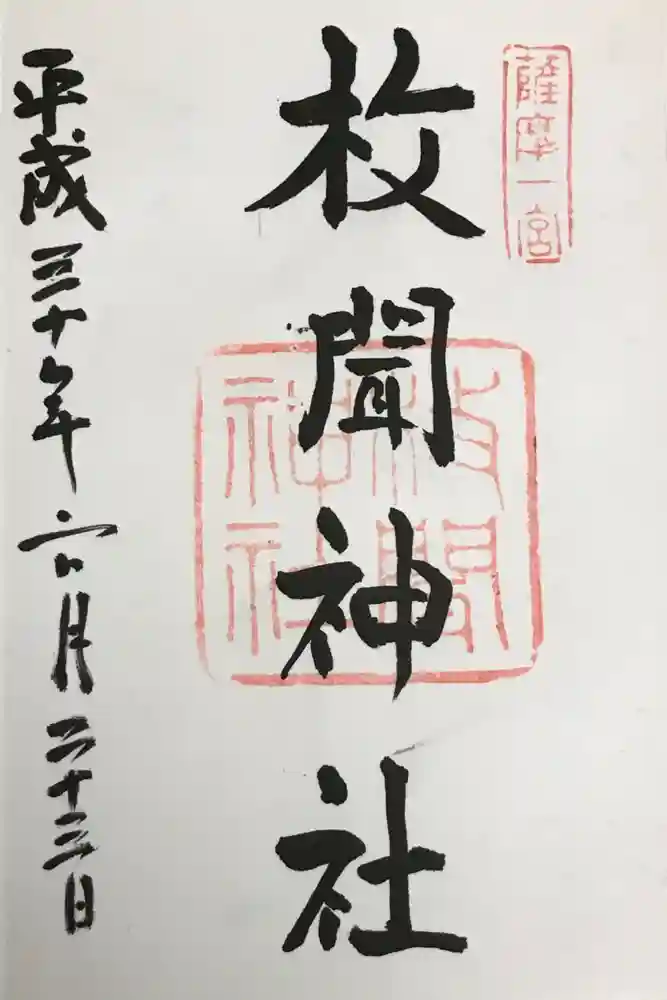 薩摩一宮
枚聞神社
枚聞神社
平成三十年六月二十三日